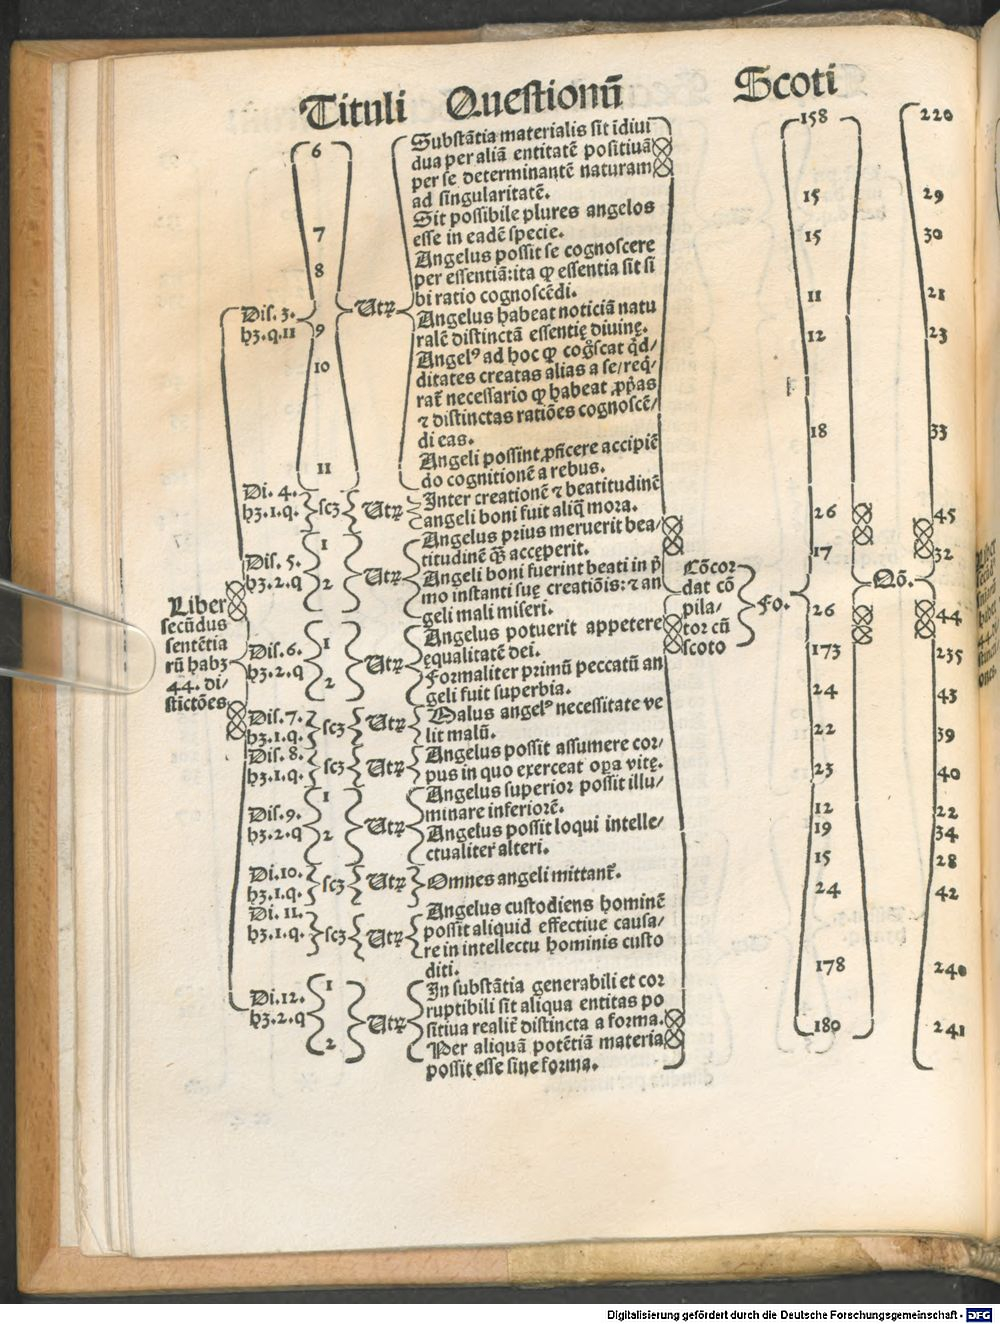 Tituli Questionũ Scoti
Liber
secũdus
sentẽtia
rũ habꝫ
44. di/
stictões
Dis. 3.
hꝫ.q.11
6
7
8
9
10
11
Utꝝ
Substãtia materialis sit ĩdiui
dua per aliã entitatẽ positiuã
per se determinantẽ naturam
ad singularitatẽ.
Sit possibile plures angelos
esse in eadẽ specie.
Angelus possit se cognoscere
per essentiã:ita ꝙ essentia sit si
bi ratio cognoscẽdi.
Angelus habeat noticiã natu
ralẽ distinctã essentię diuinę.
Angelꝰ ad hoc ꝙ
ditates creatas alias a se/
necessario ꝙ habeat
⁊ distinctas ratiões cognoscẽ/
di eas.
Angeli possint ꝓficere accipiẽ
do cognitionẽ a rebus.
Di. 4.
hꝫ.1.q.
scꝫ
Utꝝ
Inter creationẽ ⁊ beatitudinẽ
angeli boni fuit aliq̃ mora.
Dis. 5.
hꝫ.2.q
1
2
Utꝝ
Angelus prius meruerit bea/
titudinẽ q̃ȝ accęperit.
Angeli boni fuerint beati in p̃
mo instanti suę creatiõis:⁊ an
geli mali miseri.
Dis.6.
hꝫ.2.q
1
2
Utꝝ
Angelus potuerit appetere
ęqualitatẽ dei.
Formaliter primũ peccatũ an
geli fuit superbia.
Dis.7.
hꝫ.1.q.
scꝫ
Utꝝ
Malus angelꝰ necessitate ve
lit malũ.
Dis. 8.
hꝫ.1.q.
scꝫ
Utꝝ
Angelus possit assumere cor/
pus in quo exerceat oꝑa vitę.
Dis.9.
hꝫ.2.q
1
2
Utꝝ
Angelus superior possit illu/
minare inferiorẽ.
Angelus possit loqui intelle/
ctualiter alteri.
Di.10.
hꝫ.1.q.
scꝫ
Utꝝ
Omnes angeli mittant᷑.
Di. 11.
hꝫ.1.q.
scꝫ
Utꝝ
Angelus custodiens hominẽ
possit aliquid effectiue causa/
re in intellectu hominis custo
diti.
Di.12.
hꝫ.2.q
1
2
Utꝝ
In substãtia generabili et cor
ruptibili sit aliqua entitas po
sitiua realit᷑ distincta a forma.
Per aliquã potẽtiã materia
possit esse sine forma.
Cõcor
dat cõ
pila/
tor cũ
scoto
Fo.
158
15
15
11
12
18
26
17
26
173
24
22
23
12
19
15
24
178
180
Qõ.
220
29
30
21
23
33
45
32
44
235
43
39
40
22
34
28
42
240
241
Digitalisierung gefördert durch die Deutsche Forschungsgemeinschaft - DFG